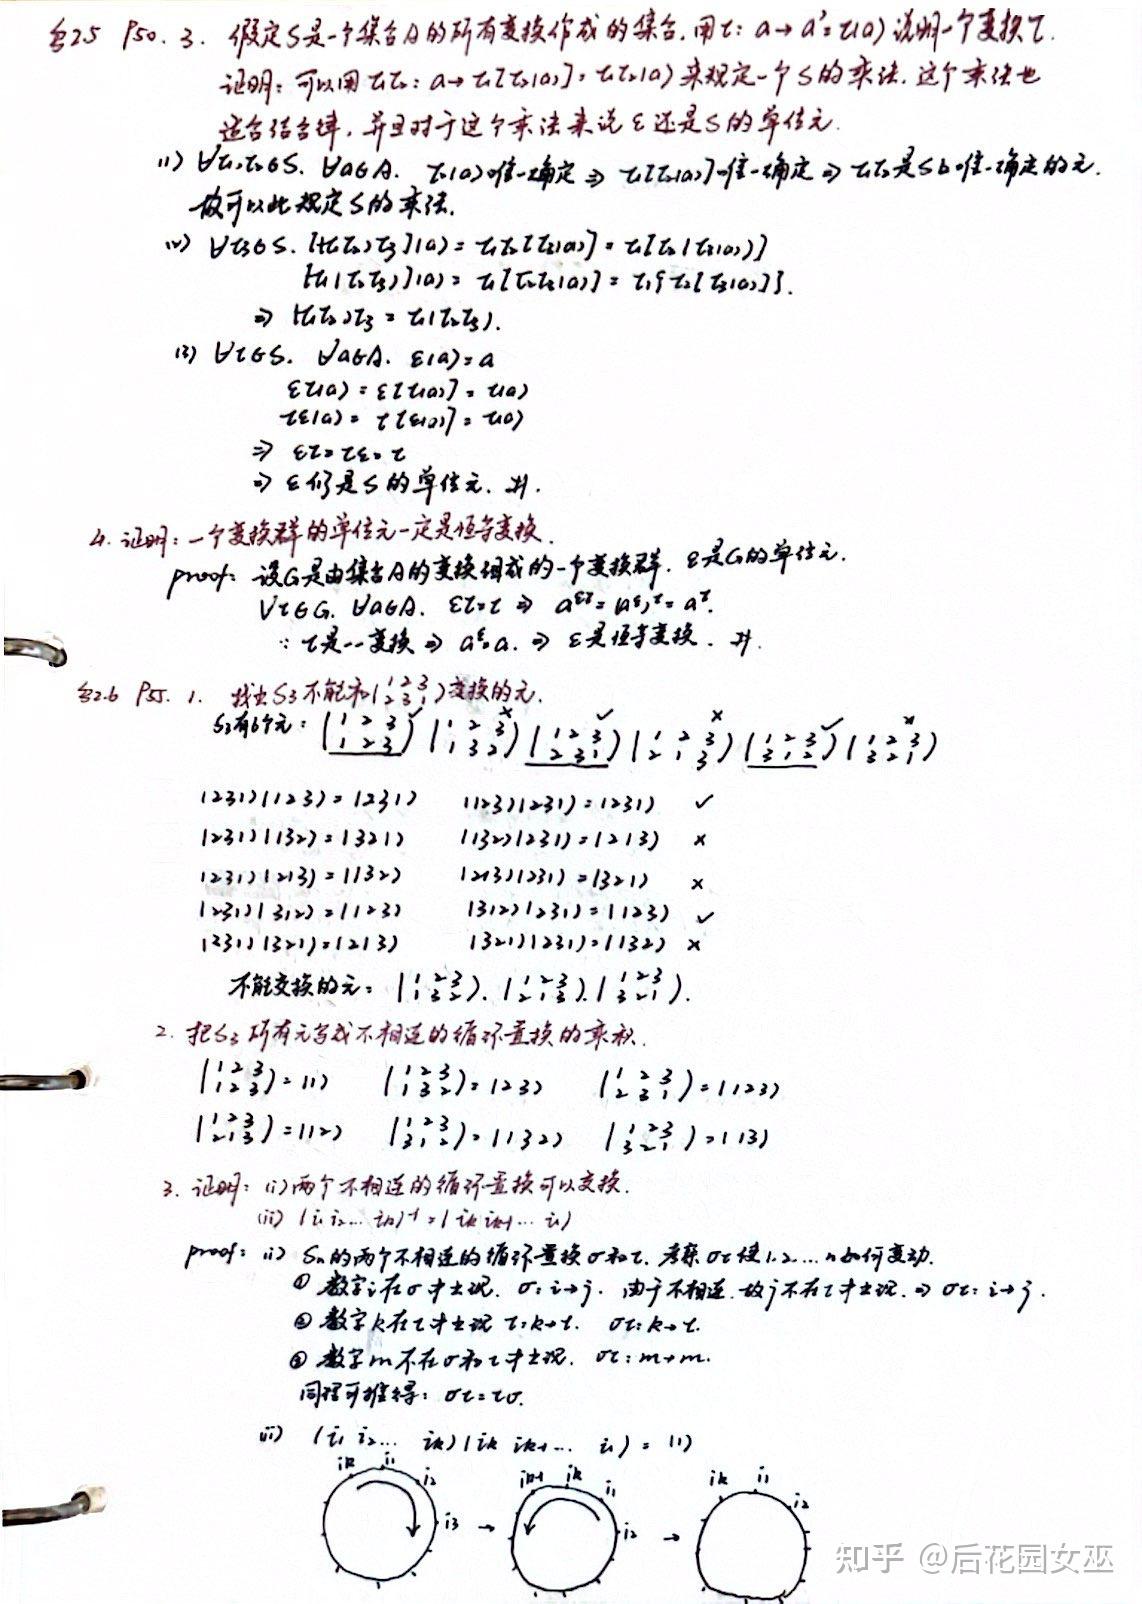 §2.5 P50. 3. 假定S是一个集合A的所有变换作成的集合.用τ: a→a'=τ(a)说明一个变换τ.
证明: 可以用τ₁τ₂: a→τ₁[τ₂(a)]=τ₁τ₂(a)来规定一个S的乘法.这个乘法也
适合结合律,并且对于这个乘法来说ε还是S的单位元.
(1) ∀τ₁,τ₂∈S. ∀a∈A. τ₂(a)唯一确定⇒τ₁[τ₂(a)]唯一确定⇒τ₁τ₂是S中唯一确定的元.
故可以此规定S的乘法.
(2) ∀τ₃∈S. [(τ₁τ₂)τ₃](a)=τ₁τ₂[τ₃(a)]=τ₁[τ₂(τ₃(a))]
[τ₁(τ₂τ₃)](a)=τ₁[τ₂τ₃(a)]=τ₁{τ₂[τ₃(a)]}.
⇒ (τ₁τ₂)τ₃=τ₁(τ₂τ₃).
(3) ∀τ∈S. ∀a∈A. ε(a)=a
ετ(a)=ε[τ(a)]=τ(a)
τε(a)=τ[ε(a)]=τ(a)
⇒ ετ=τε=τ
⇒ ε仍是S的单位元. #.
4. 证明: 一个变换群的单位元一定是恒等变换.
proof: 设G是由集合A的变换组成的一个变换群. ε是G的单位元.
∀τ∈G. ∀a∈A. ετ=τ ⇒ a^ετ=(a^ε)^τ=a^τ.
∵ τ是一一变换 ⇒ a^ε=a. ⇒ ε是恒等变换. #.
§2.6 P55. 1. 找出S₃不能和(1 2 3 / 2 3 1)交换的元.
S₃有6个元: (1 2 3 / 1 2 3)✓ (1 2 3 / 1 3 2)× (1 2 3 / 2 3 1)✓ (1 2 3 / 2 1 3)× (1 2 3 / 3 1 2)✓ (1 2 3 / 3 2 1)×
(231)(123)=(231) (123)(231)=(231) ✓
(231)(132)=(321) (132)(231)=(213) ×
(231)(213)=(132) (213)(231)=(321) ×
(231)(312)=(123) (312)(231)=(123) ✓
(231)(321)=(213) (321)(231)=(132) ×
不能交换的元: (1 2 3 / 1 3 2). (1 2 3 / 2 1 3). (1 2 3 / 3 2 1).
2. 把S₃所有元写成不相连的循环置换的乘积.
(1 2 3 / 1 2 3)=(1) (1 2 3 / 1 3 2)=(23) (1 2 3 / 2 3 1)=(123)
(1 2 3 / 2 1 3)=(12) (1 2 3 / 3 1 2)=(132) (1 2 3 / 3 2 1)=(13)
3. 证明: (i)两个不相连的循环置换可以交换.
(ii) (i₁ i₂… iₖ)⁻¹=(iₖ iₖ₋₁… i₁)
proof: (i) Sₙ的两个不相连的循环置换σ和τ. 考察στ使1.2…n如何变动.
① 数字i在σ中出现. σ: i→j. 由于不相连.故j不在τ中出现.⇒στ: i→j.
② 数字k在τ中出现 τ: k→t. στ: k→t.
③ 数字m不在σ和τ中出现. στ: m→m.
同理可推得: στ=τσ.
(ii) (i₁ i₂… iₖ)(iₖ iₖ₋₁… i₁)=(1)
iₖ i₁ i₂ i₃ → iₖ₋₁ iₖ i₁ i₂ → iₖ i₁ i₂
知乎 @后花园女巫